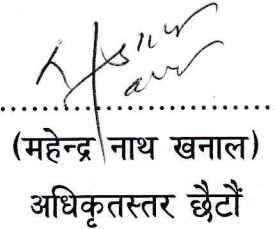 (महेन्द्र नाथ खनाल)
अधिकृतस्तर छैटौं